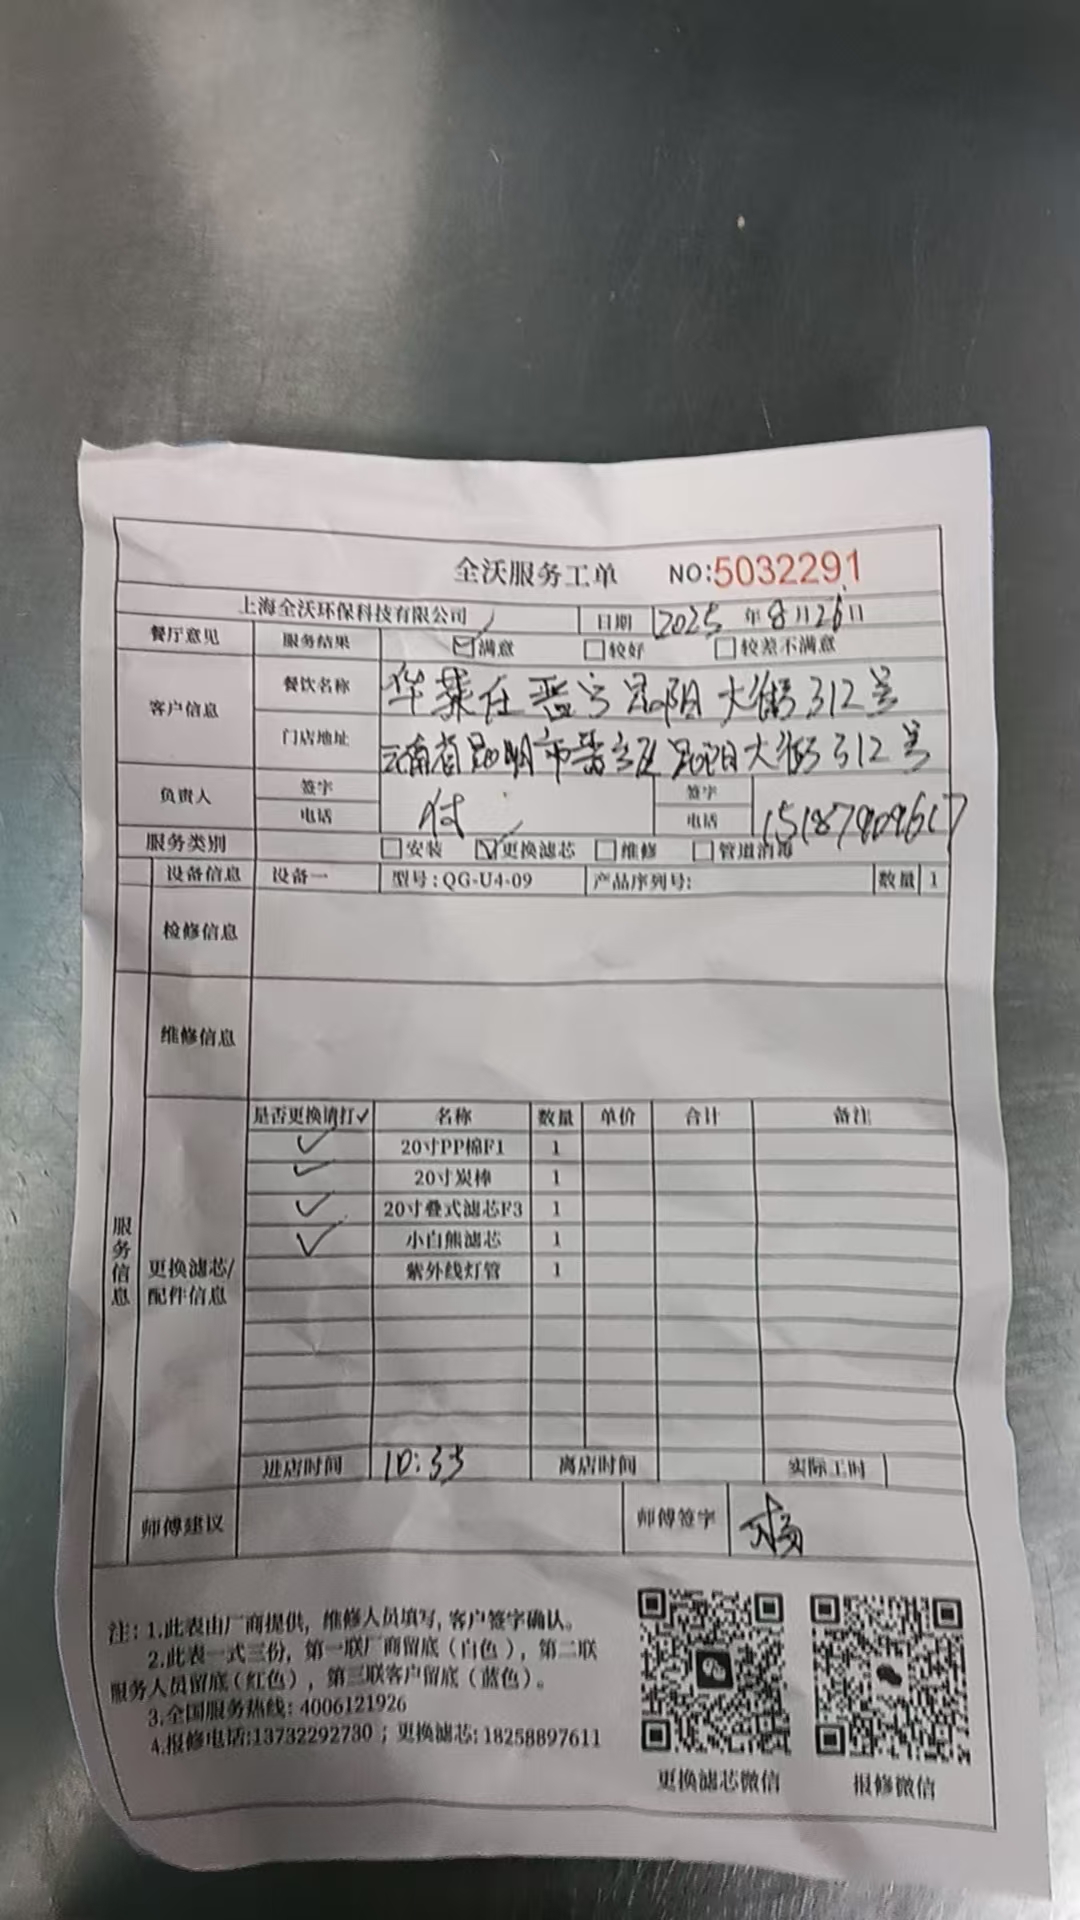 全沃服务工单 NO:5032291
上海全沃环保科技有限公司 日期 2025年8月26日
餐厅意见 服务结果 ☑满意 □较好 □较差不满意
客户信息 餐饮名称 华莱仕晋宁昆阳大街312号
门店地址 云南省昆明市晋宁区昆阳大街312号
负责人 签字 付 签字
电话 电话 15187909617
服务类别 □安装 ☑更换滤芯 □维修 □管道消毒
设备信息 设备一 型号:QG-U4-09 产品序列号: 数量 1
检修信息
维修信息
服务信息
更换滤芯/配件信息
是否更换请打✓ 名称 数量 单价 合计 备注
✓ 20寸PP棉F1 1
✓ 20寸炭棒 1
✓ 20寸叠式滤芯F3 1
✓ 小白熊滤芯 1
紫外线灯管 1
进店时间 10:35 离店时间 实际工时
师傅建议 师傅签字 杨
注:1.此表由厂商提供，维修人员填写,客户签字确认。
2.此表一式三份，第一联厂商留底（白色），第二联
服务人员留底（红色），第三联客户留底（蓝色）。
3.全国服务热线: 4006121926
4.报修电话:13732292730 ; 更换滤芯: 18258897611
更换滤芯微信 报修微信